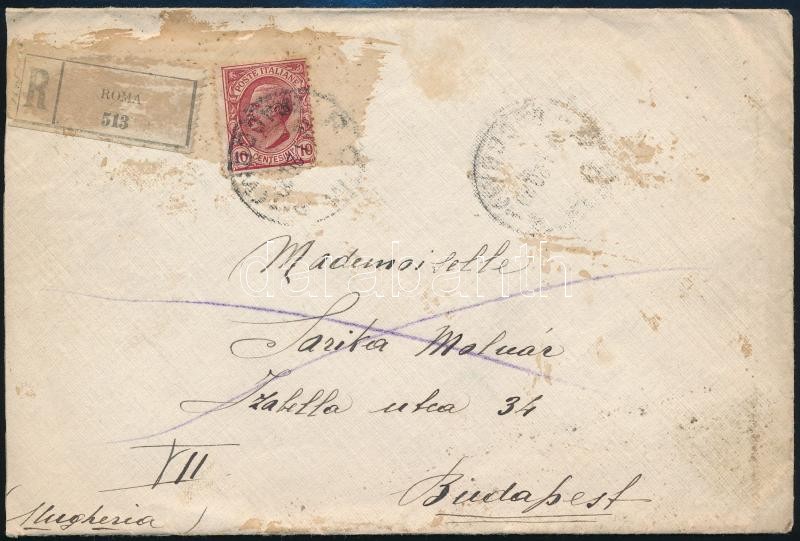 R
ROMA
513
POSTE ITALIANE
10 CENTESIMI 10
Mademoiselle
Sarika Molnár
Izabella utca 34
VII
Budapest
(Ungheria)
darabanth